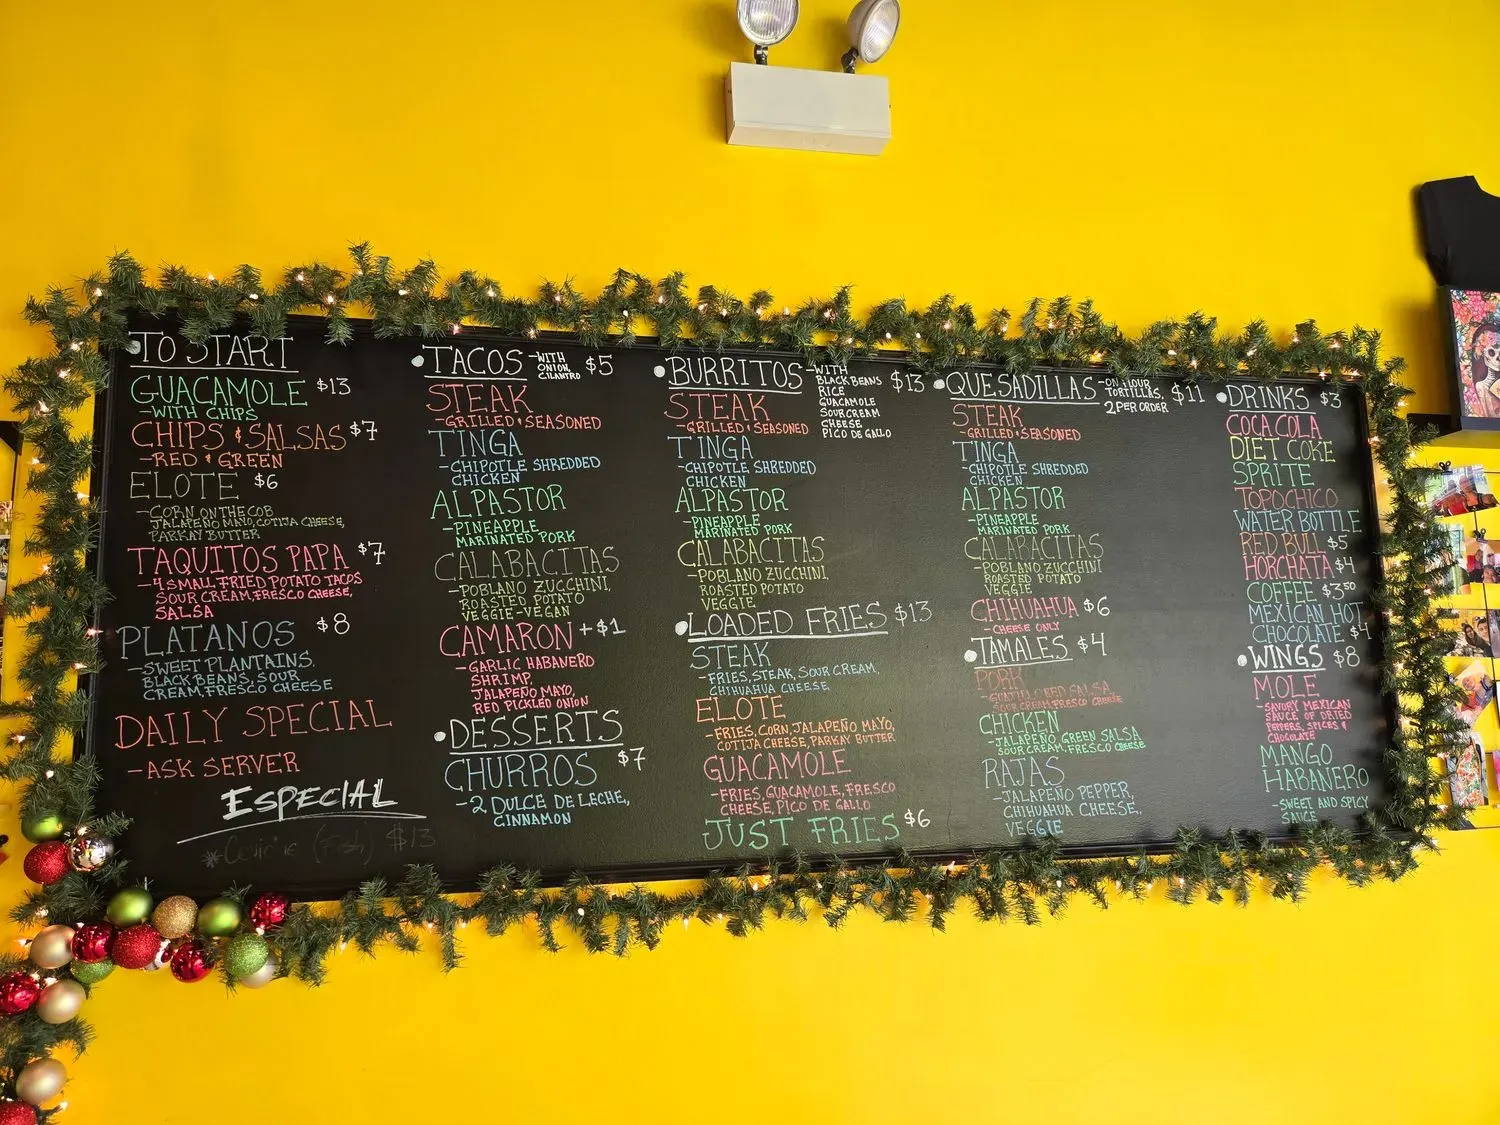 TO START
GUACAMOLE $13
-WITH CHIPS
CHIPS & SALSAS $7
-RED & GREEN
ELOTE $6
-CORN ON THE COB
JALAPEÑO MAYO, COTIJA CHEESE,
PARKAY BUTTER
TAQUITOS PAPA $7
-4 SMALL FRIED POTATO TACOS
SOUR CREAM, FRESCO CHEESE,
SALSA
PLATANOS $8
-SWEET PLANTAINS.
BLACK BEANS, SOUR
CREAM, FRESCO CHEESE
DAILY SPECIAL
-ASK SERVER
ESPECIAL
(Fish) $13
•TACOS -WITH $5
ONION,
CILANTRO
STEAK
-GRILLED & SEASONED
TINGA
-CHIPOTLE SHREDDED
CHICKEN
ALPASTOR
-PINEAPPLE
MARINATED PORK
CALABACITAS
-POBLANO ZUCCHINI,
ROASTED POTATO
VEGGIE-VEGAN
CAMARON +$1
-GARLIC HABANERO
SHRIMP,
JALAPEÑO MAYO,
RED PICKLED ONION
•DESSERTS
CHURROS $7
-2 DULCE DE LECHE,
CINNAMON
•BURRITOS -WITH $13
BLACK BEANS
RICE
GUACAMOLE
SOUR CREAM
CHEESE
PICO DE GALLO
STEAK
-GRILLED & SEASONED
TINGA
-CHIPOTLE SHREDDED
CHICKEN
ALPASTOR
-PINEAPPLE
MARINATED PORK
CALABACITAS
-POBLANO ZUCCHINI,
ROASTED POTATO
VEGGIE
•LOADED FRIES $13
STEAK
-FRIES, STEAK, SOUR CREAM,
CHIHUAHUA CHEESE,
ELOTE
-FRIES, CORN, JALAPEÑO MAYO,
COTIJA CHEESE, PARKAY BUTTER
GUACAMOLE
-FRIES, GUACAMOLE, FRESCO
CHEESE, PICO DE GALLO
JUST FRIES $6
•QUESADILLAS -ON FLOUR $11
TORTILLAS,
2 PER ORDER
STEAK
-GRILLED & SEASONED
TINGA
-CHIPOTLE SHREDDED
CHICKEN
ALPASTOR
-PINEAPPLE
MARINATED PORK
CALABACITAS
-POBLANO ZUCCHINI
ROASTED POTATO
VEGGIE
CHIHUAHUA $6
-CHEESE ONLY
•TAMALES $4
PORK
RED SALSA,
SOUR CREAM, FRESCO CHEESE
CHICKEN
-JALAPEÑO GREEN SALSA
SOUR CREAM, FRESCO CHEESE
RAJAS
-JALAPEÑO PEPPER,
CHIHUAHUA CHEESE,
VEGGIE
•DRINKS $3
COCA COLA
DIET COKE
SPRITE
TOPOCHICO
WATER BOTTLE
RED BULL $5
HORCHATA $4
COFFEE $3.50
MEXICAN HOT
CHOCOLATE $4
•WINGS $8
MOLE
-SAVORY MEXICAN
SAUCE OF DRIED
PEPPERS, SPICES &
CHOCOLATE
MANGO
HABANERO
-SWEET AND SPICY
SAUCE